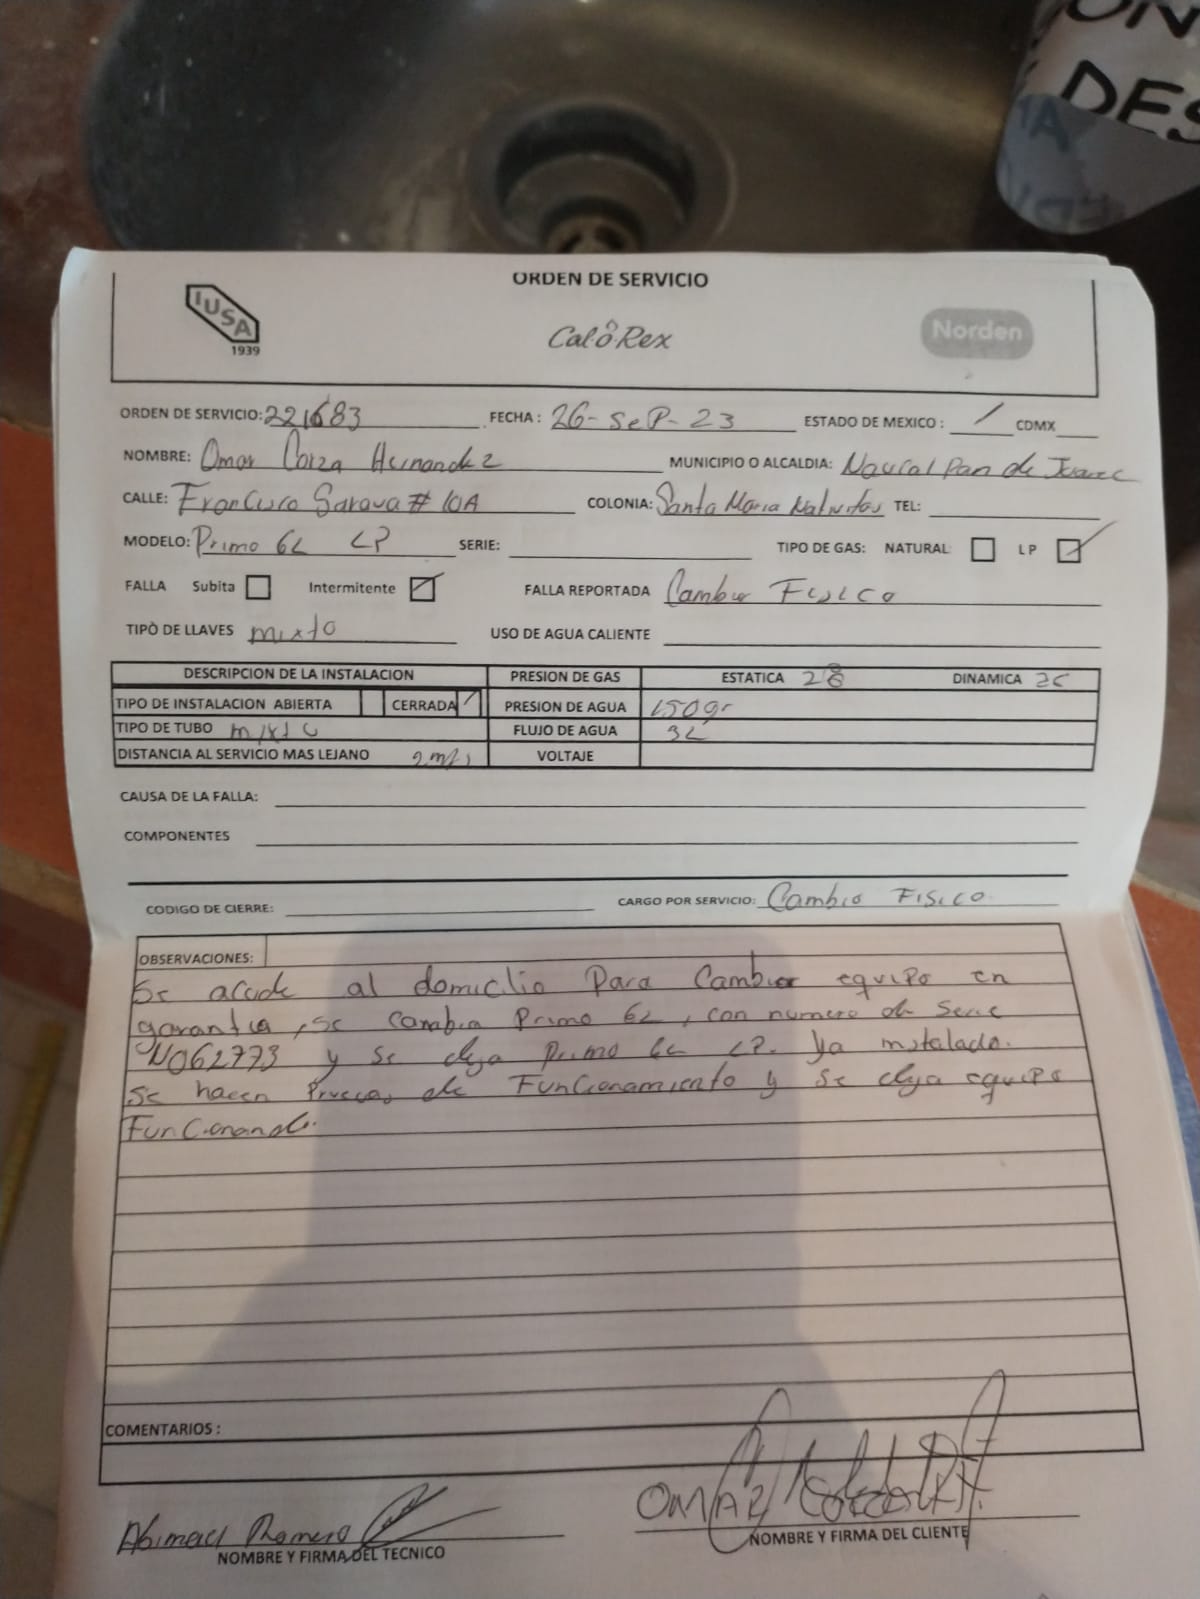 ON
DES
ORDEN DE SERVICIO
IUSA
1939
Cal-o-Rex
Norden
ORDEN DE SERVICIO: 221683 FECHA: 26-SeP-23 ESTADO DE MEXICO: / CDMX
NOMBRE: Omar Hernandez MUNICIPIO O ALCALDIA: Naucalpan de Juarez
CALLE: # 10A COLONIA: Santa Maria Nativitas TEL:
MODELO: Primo 6L LP SERIE: TIPO DE GAS: NATURAL LP
FALLA Subita Intermitente FALLA REPORTADA Cambio Fisico
TIPÒ DE LLAVES mixto USO DE AGUA CALIENTE
DESCRIPCION DE LA INSTALACION PRESION DE GAS ESTATICA 28 DINAMICA
TIPO DE INSTALACION ABIERTA CERRADA PRESION DE AGUA 150gr
TIPO DE TUBO mixto FLUJO DE AGUA 3L
DISTANCIA AL SERVICIO MAS LEJANO 2mts VOLTAJE
CAUSA DE LA FALLA:
COMPONENTES
CODIGO DE CIERRE: CARGO POR SERVICIO: Cambio Fisico.
OBSERVACIONES:
Se acude al domicilio Para Cambiar equipo en
garantia, se cambia Primo 6L, con numero de serie
N062773 y se deja Primo 6L LP. Ya instalado.
Se hacen Pruebas de Funcionamiento y se deja equipo
Funcionando.
COMENTARIOS :
Abimael Romero
NOMBRE Y FIRMA DEL TECNICO
OMAR
NOMBRE Y FIRMA DEL CLIENTE